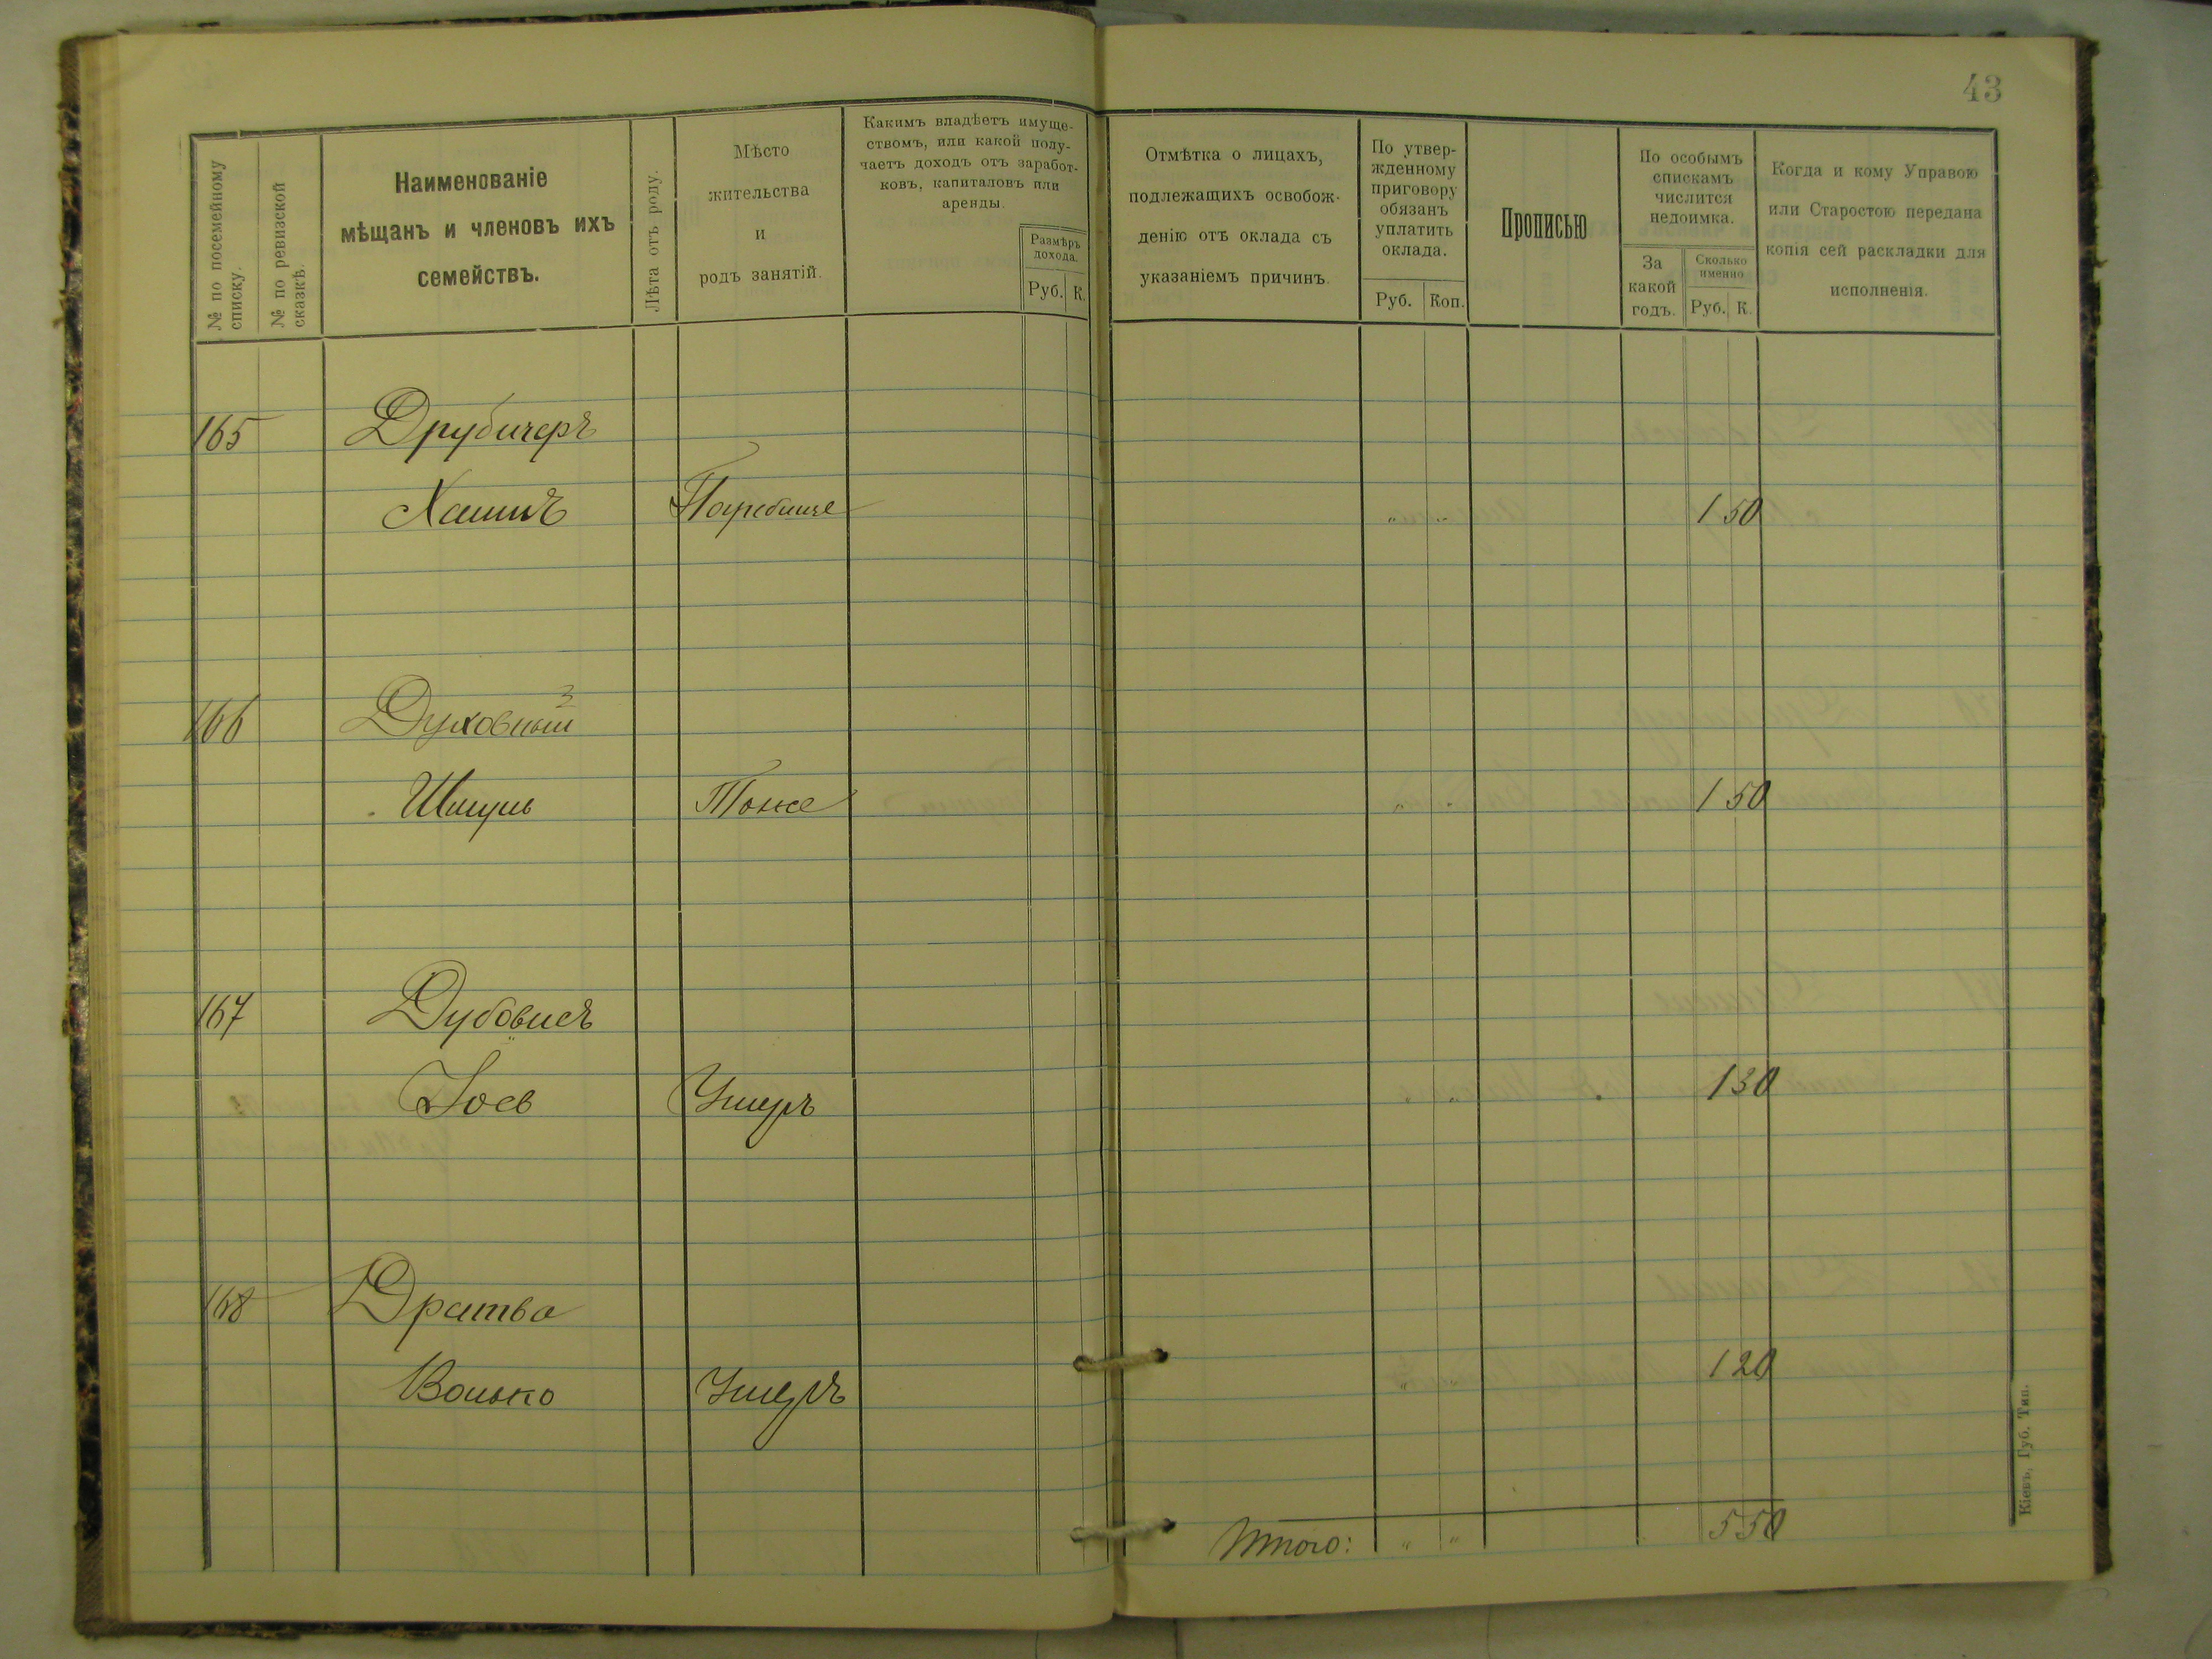 43
№ по посемейному списку.
№ по ревизской сказкѣ.
Наименованіе
мѣщанъ и членовъ ихъ
семействъ.
Лѣта отъ роду.
Мѣсто
жительства
и
родъ занятій.
Какимъ владѣетъ имуще-
ствомъ, или какой полу-
чаетъ доходъ отъ заработ-
ковъ, капиталовъ или
аренды.
Размѣръ
дохода.
Руб. К.
Отмѣтка о лицахъ,
подлежащихъ освобож-
денію отъ оклада съ
указаніемъ причинъ.
По утвер-
жденному
приговору
обязанъ
уплатить
оклада.
Руб. Коп.
Прописью
По особымъ
спискамъ
числится
недоимка.
За
какой
годъ.
Сколько
именно
Руб. К.
Когда и кому Управою
или Старостою передана
копія сей раскладки для
исполненія.
165 Друбичеръ
Хаимъ Погребище " " 1 50
166 Духовный
Шмуль Тоже " " 1 50
167 Дубовисъ
Іосъ Умеръ " " 1 30
168 Дратва
Волько Умеръ " " 1 20
Итого: " " 5 50
Кіевъ, Губ. Тип.